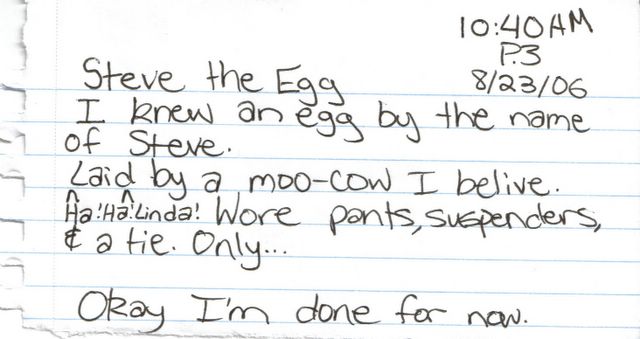 10:40AM
P.3
8/23/06
Steve the Egg
I knew an egg by the name
of Steve.
Laid by a moo-cow I belive.
Ha! Ha! Linda! Wore pants, suspenders,
& a tie. Only...
Okay I'm done for now.